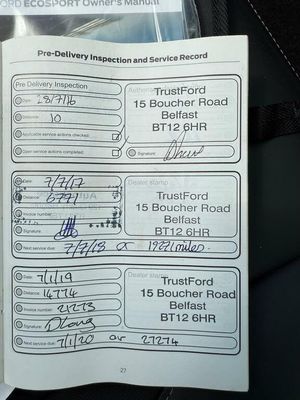 ORD ECOSPORT Owner's Manual
Pre-Delivery Inspection and Service Record
Pre Delivery Inspection
Date: 28/7/16
Distance: 10
Applicable service actions checked:
Open service actions completed:
TrustFord
15 Boucher Road
Belfast
BT12 6HR
Signature:
Date: 7/7/17
Distance: 6771
Invoice number:
Signature:
Dealer stamp
TrustFord
15 Boucher Road
Belfast
BT12 6HR
Next service due: 7/7/18 or 19221 miles.
Date: 7/1/19
Distance: 14774
Invoice number: 21273
Signature:
Dealer stamp
TrustFord
15 Boucher Road
Belfast
BT12 6HR
Next service due: 7/1/20 or 27274
27